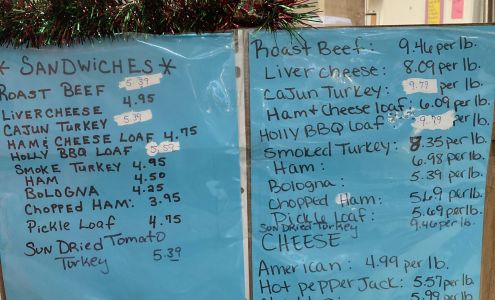 * SANDWICHES *
ROAST BEEF 5.39
LIVERCHEESE 4.95
CAJUN TURKEY 5.39
HAM & CHEESE LOAF 4.75
HOLLY BBQ LOAF 5.59
SMOKE TURKEY 4.95
HAM 4.50
BOLOGNA 4.25
CHOPPED HAM: 3.95
Pickle Loaf 4.75
SUN DRied Tomato
Turkey 5.39
Roast Beef: 9.46 per lb.
Liver cheese: 8.09 per lb.
Cajun Turkey: 9.79 per lb.
Ham & Cheese loaf: 6.09 per lb.
Holly BBQ Loaf 9.79 per lb.
Smoked Turkey: 8.35 per lb.
Ham: 6.98 per lb.
Bologna: 5.39 per lb.
Chopped Ham: 5.69 per lb.
Pickle Loaf: 5.69 per lb.
Sun Dried Turkey 9.46 per lb.
CHEESE
American: 4.99 per lb.
Hot pepper Jack: 5.57 per lb.
5.99 per lb.